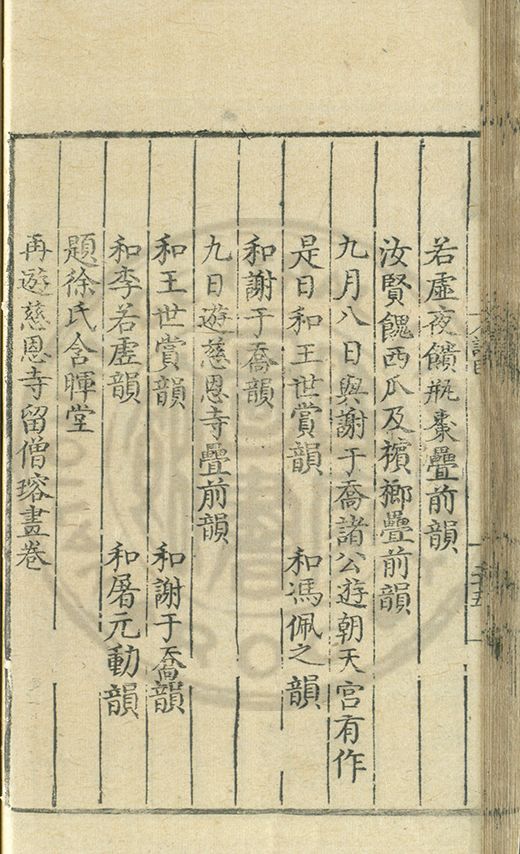 若虛夜饋瓶棗疊前韻
汝賢餽西瓜及檳榔疊前韻
九月八日與謝于喬諸公遊朝天宮有作
是日和王世賞韻 和馮佩之韻
和謝于喬韻
九日遊慈恩寺疊前韻
和王世賞韻 和謝于喬韻
和李若虛韻 和屠元動韻
題徐氏含暉堂
再遊慈恩寺留僧瑢畫卷